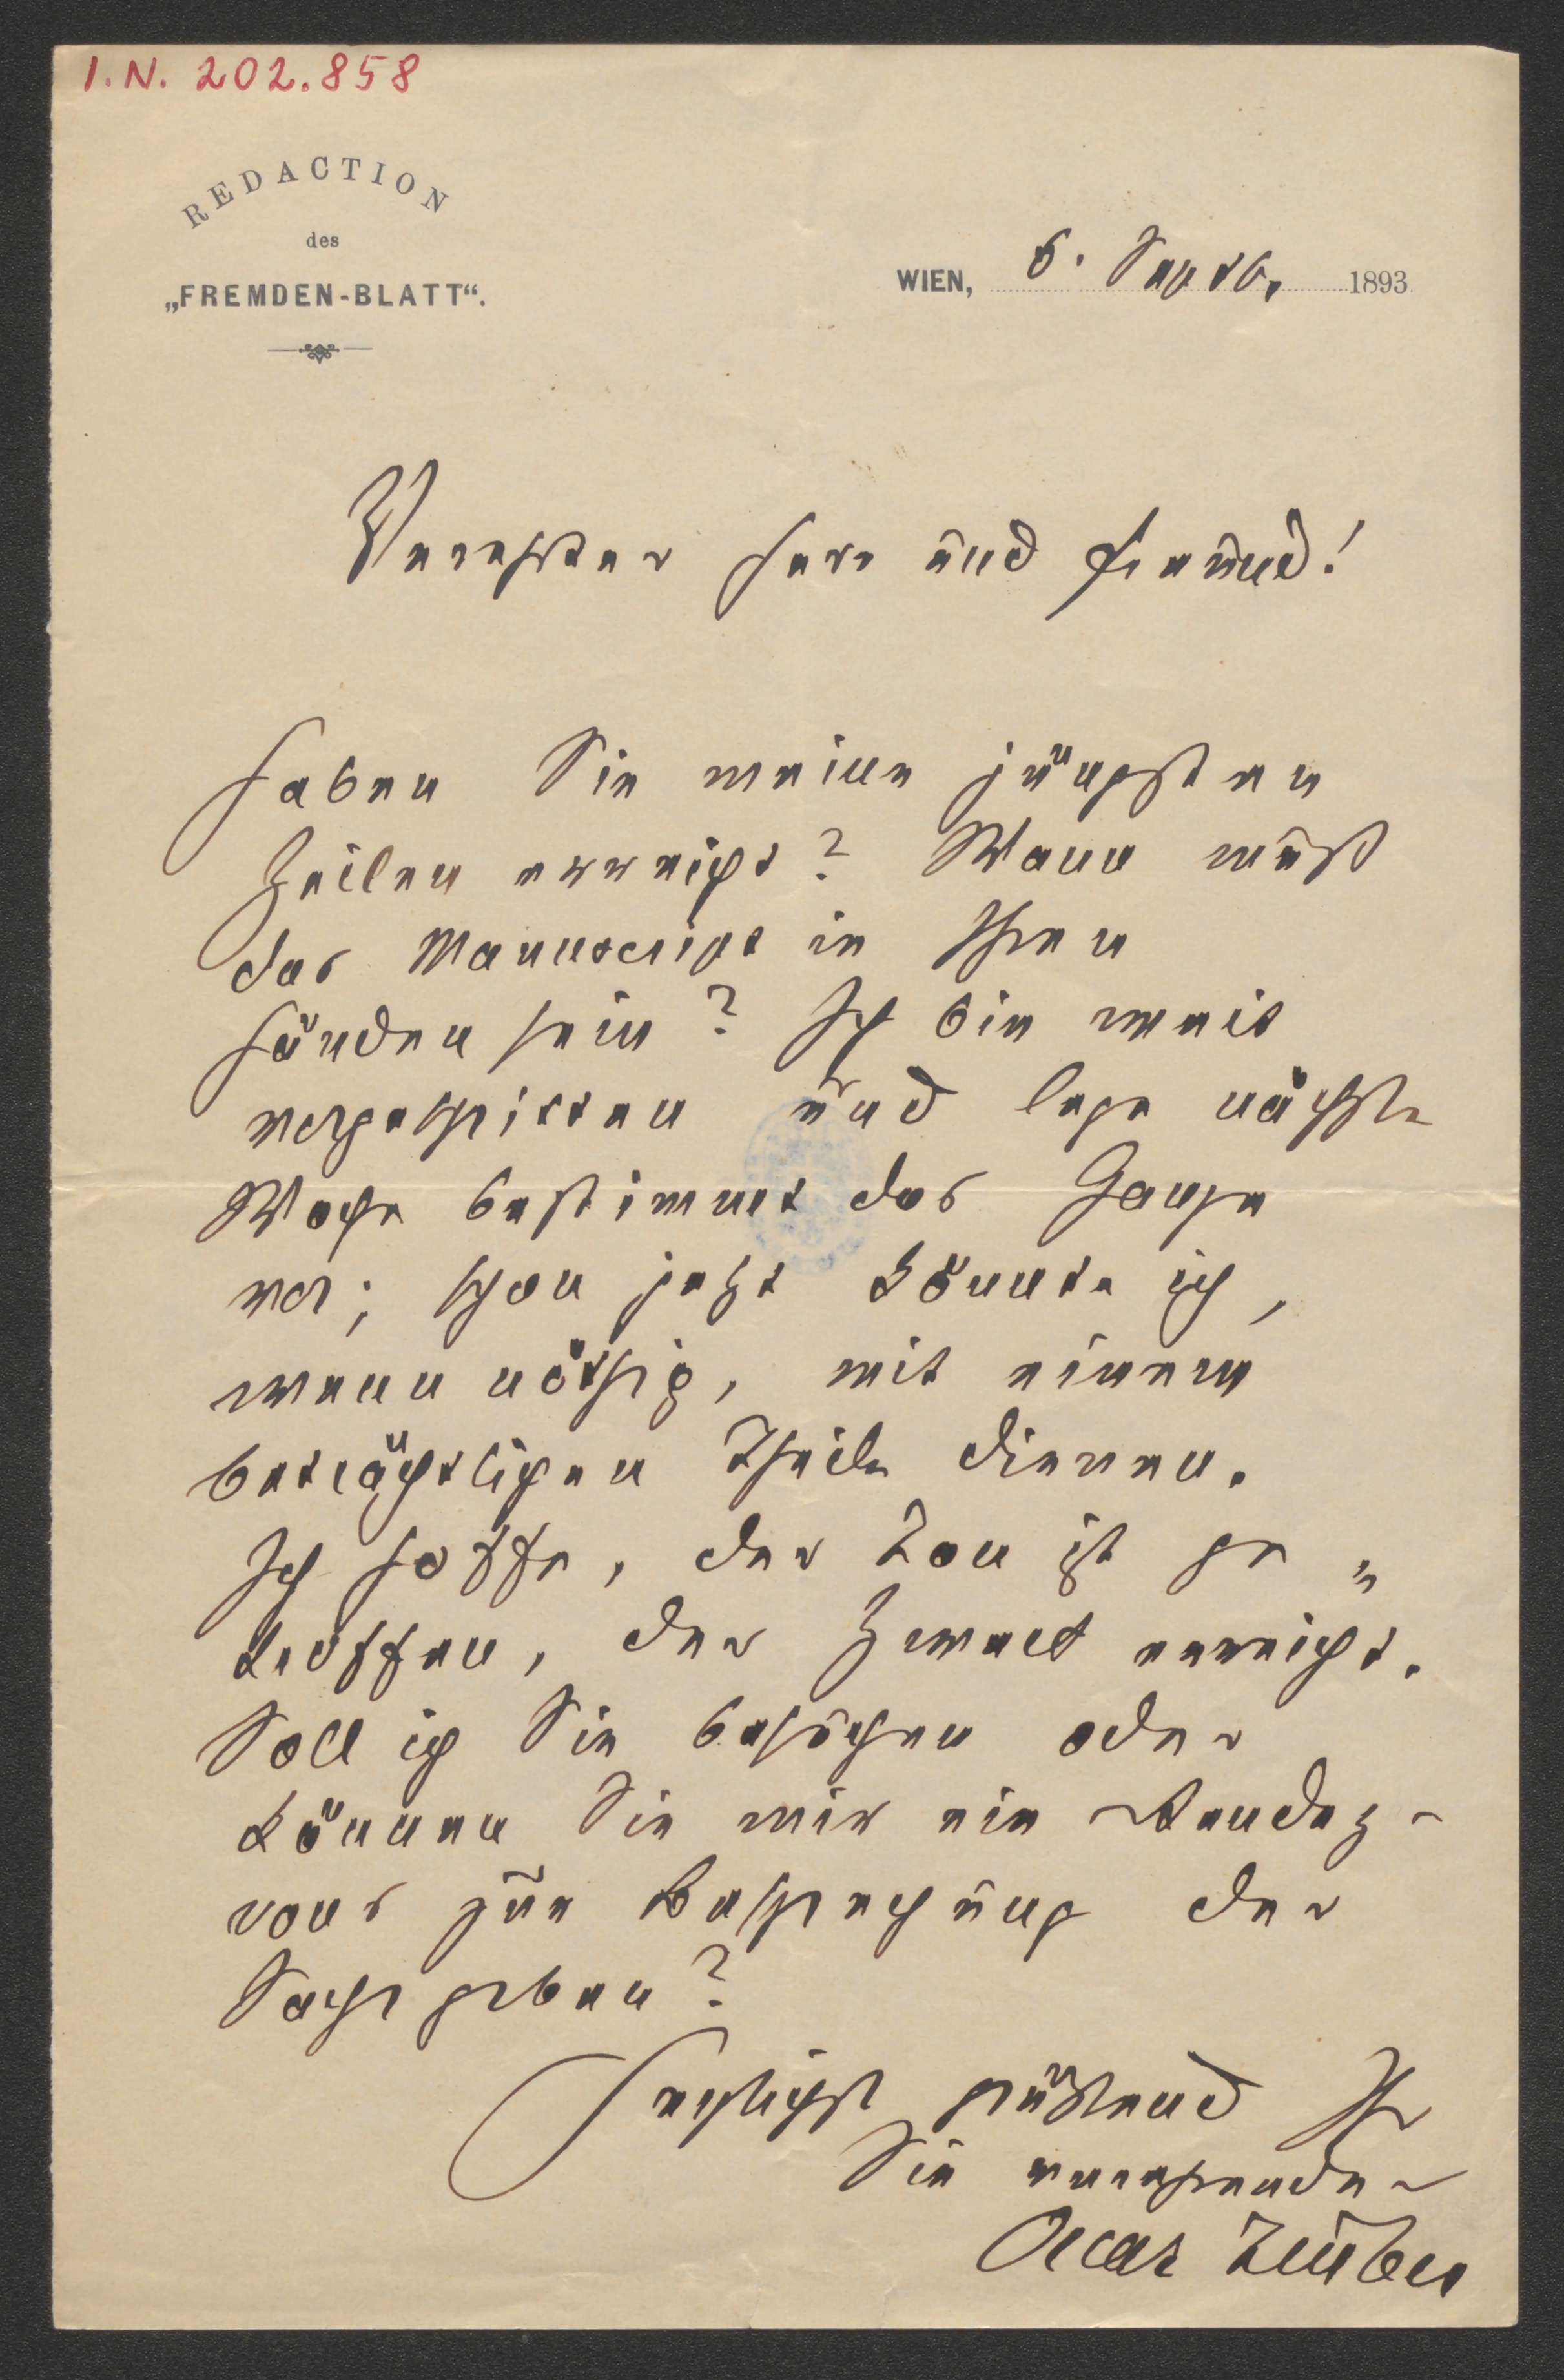 I.N. 202.858
REDACTION
des
„FREMDEN-BLATT“.
WIEN, 6. Septb. 1893
Verehrter Herr und Freund!
Haben Sie meine jüngsten
Zeilen erreicht? Wann muß
das Manuscript in Ihren
Händen sein? Ich bin weit
vorgeschritten und lege nächste
Woche bestimmt das Ganze
vor; schon jetzt könnte ich,
wenn nöthig, mit einem
beträchtlichen Theile dienen.
Ich hoffe, der Ton ist ge„
troffen, der Zweck erreicht.
Soll ich Sie besuchen oder
können Sie mir ein Rendez-
vous zur Besprechung der
Sache geben?
Herzlichst grüßend Ihr
Sie verehrender
Oscar Teuber